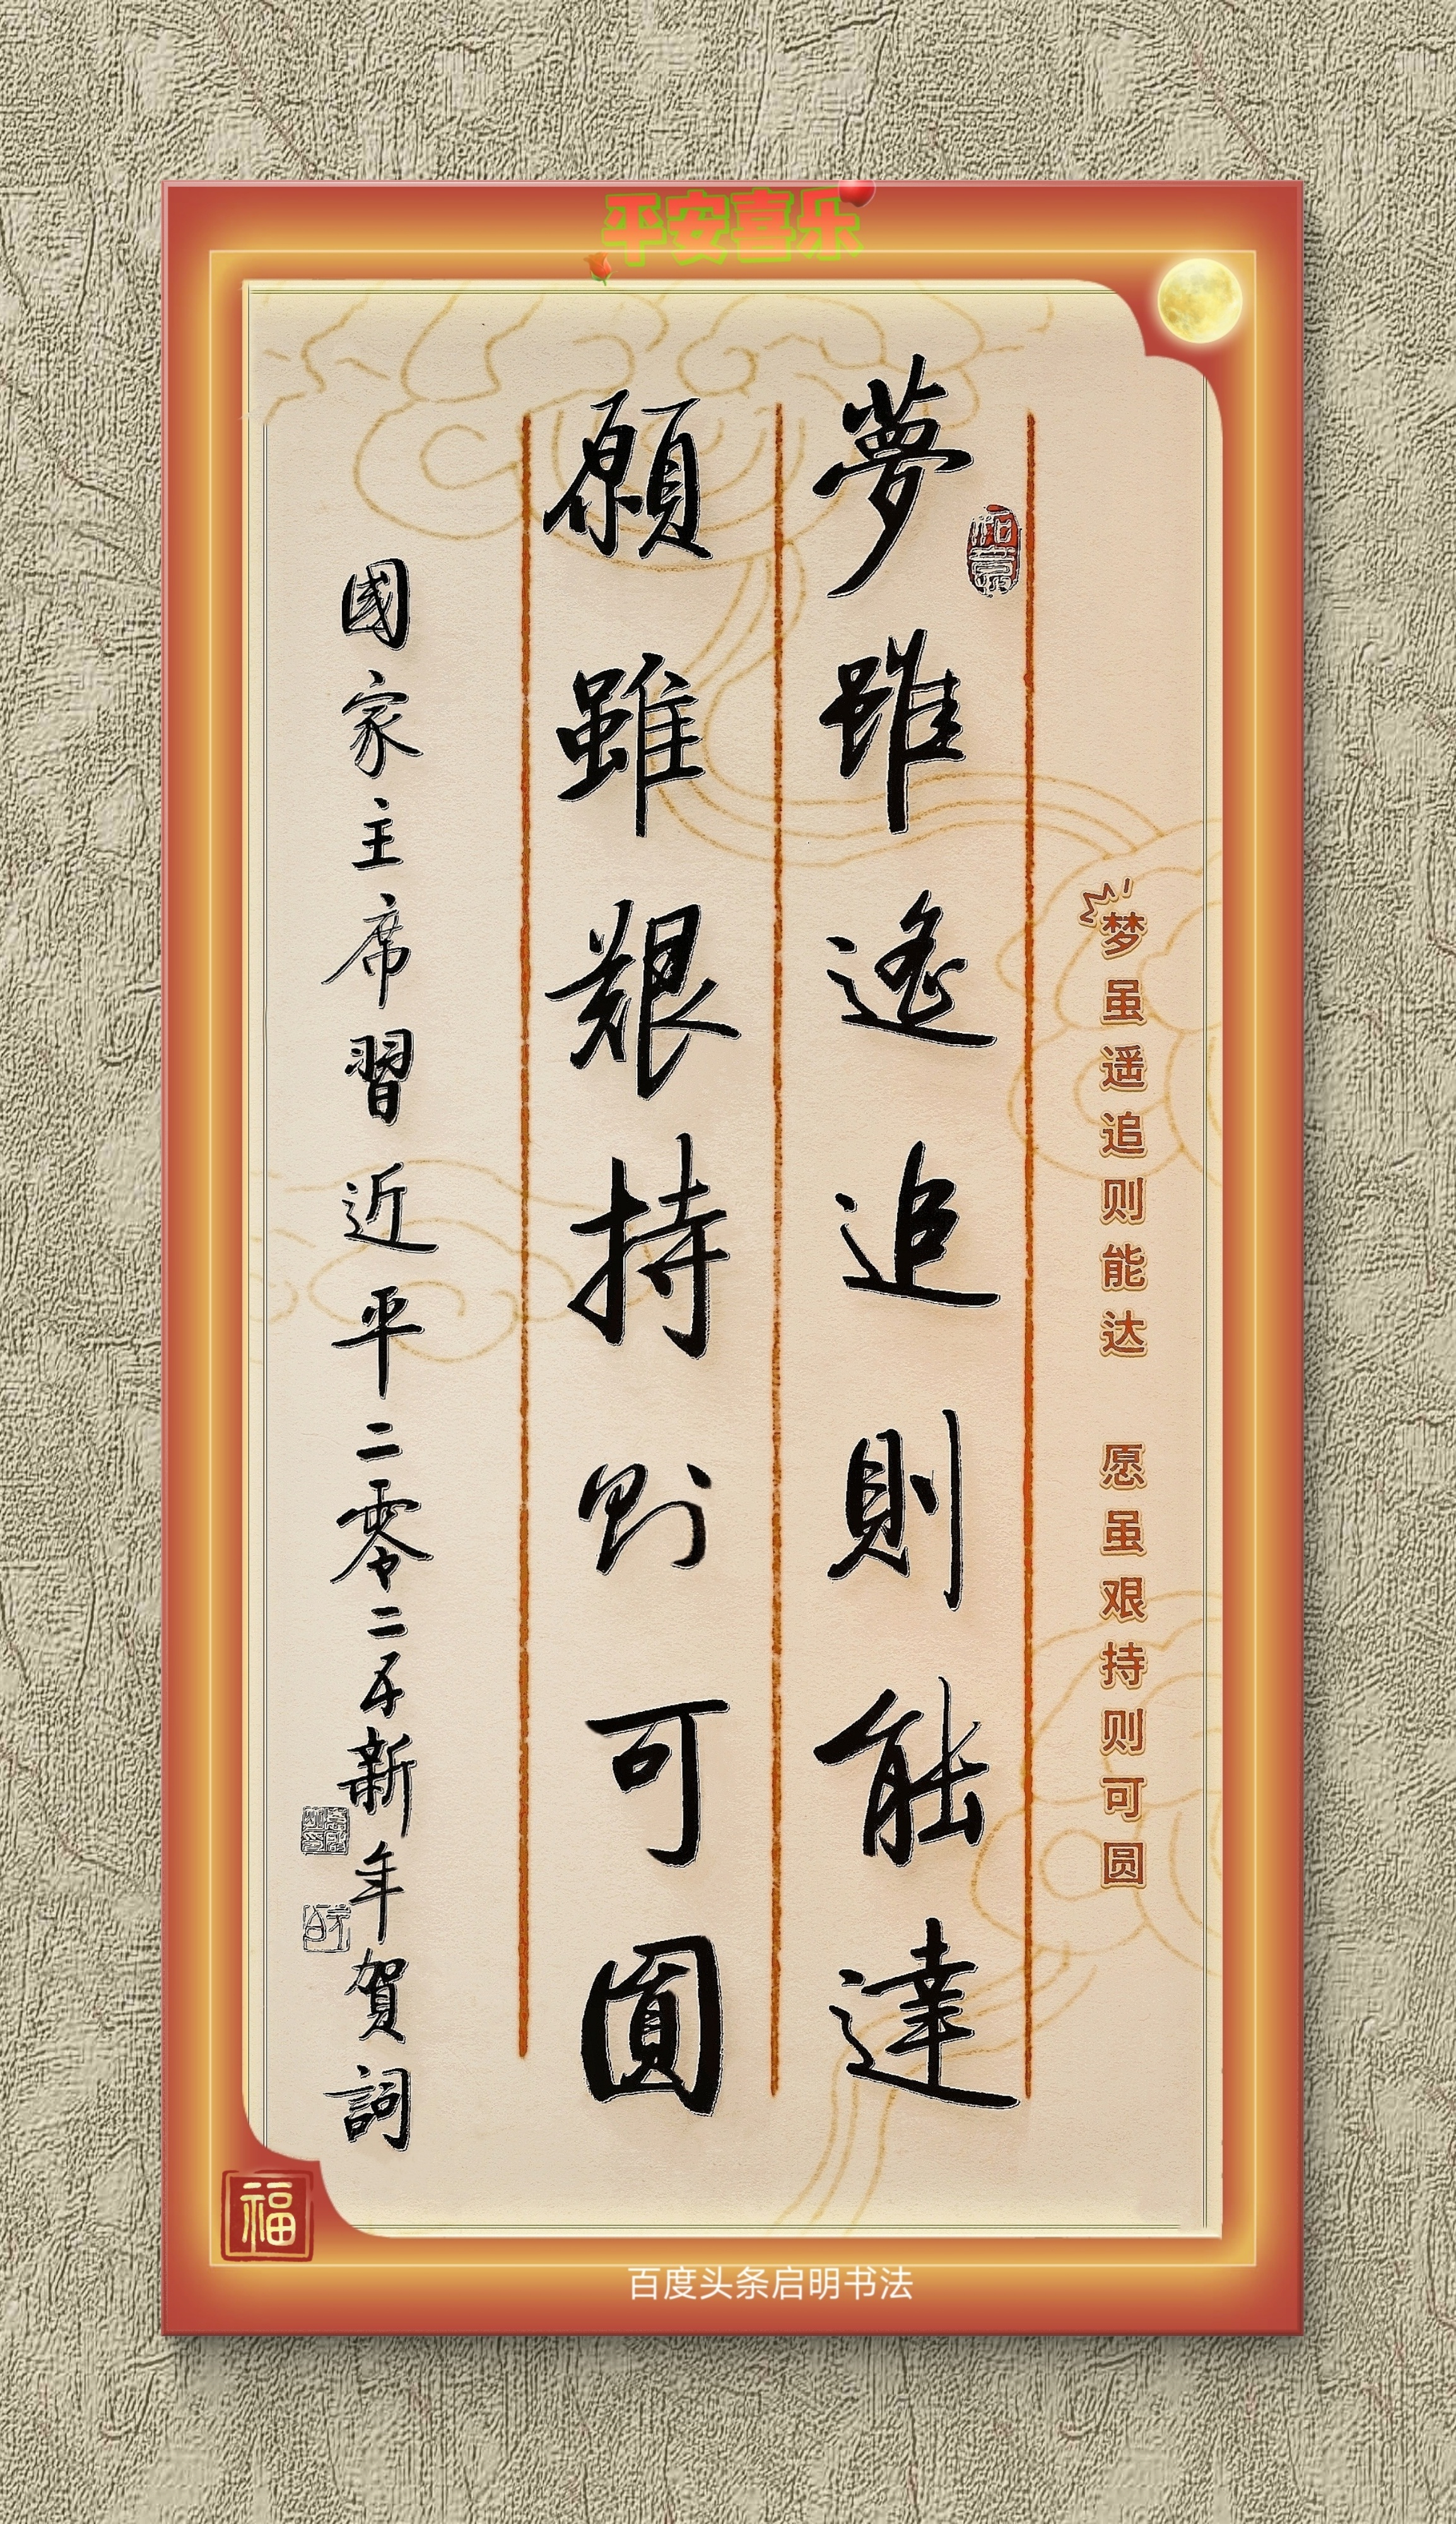 平安喜乐
梦虽遥追则能达 愿虽艰持则可圆
夢雖遙追則能達
願雖艱持則可圓
國家主席習近平二零二五新年賀詞
福
百度头条启明书法